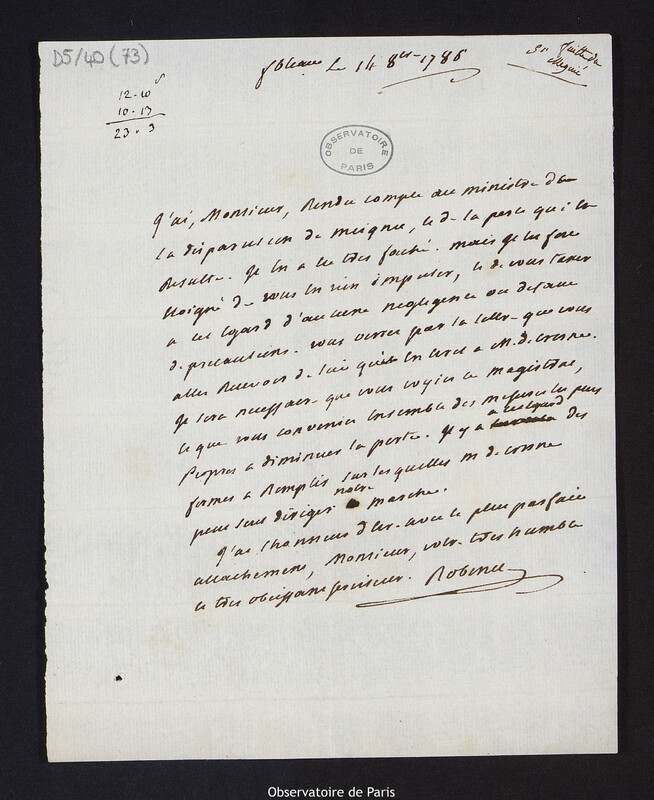 D5/40 (73)
12.10
10.13
23.3
fbleau Le 14 8bre 1786
OBSERVATOIRE
DE
PARIS
J'ai, Monsieur, Rendu compte au ministre de
la disparution de meignié, et de la perte qui en
Resulte. Il en a été très faché. mais il est fort
éloigné de vous en rien imputer, et de vous taxer
a cet égard d'aucune negligence ou defaut
de precautions. vous verrez par la lettre que vous
allez Recevoir de lui qu'il en écrit a M. de crosne.
Il sera necessaire que vous voyiez ce magistrat,
et que vous conveniez Ensemble des mesures les plus
propres a diminuer la perte. Il y a a cet égard des
formes a Remplir sur les quelles M de crosne
peut seul diriger notre marche.
J'ai l'honneur d'être avec le plus parfait
attachement, Monsieur, votre très humble
et très obeissant serviteur. Robinet
Observatoire de Paris